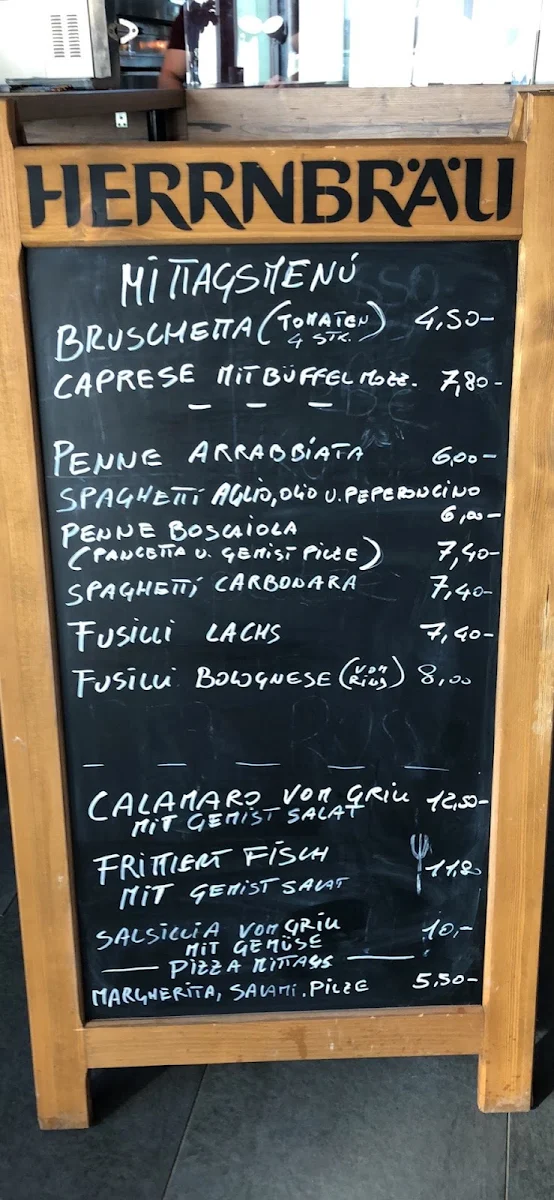 HERRNBRÄU
MITTAGSMENÚ
BRUSCHETTA (TOMATEN 4 STK.) 4,50-
CAPRESE MIT BÜFFEL MOZZ. 7,80-
PENNE ARRABBIATA 6,00-
SPAGHETTI AGLIO, OLIO U. PEPERONCINO
6,00-
PENNE BOSCAIOLA
(PANCETTA U. GEMIST PILZE) 7,40-
SPAGHETTI CARBONARA 7,40-
FUSILLI LACHS 7,40-
FUSILLI BOLOGNESE (VOM RIND) 8,00
CALAMARO VOM GRILL 12,50-
MIT GEMIST SALAT
FRITTIERT FISCH 11,80
MIT GEMIST SALAT
SALSICCIA VOM GRILL 10,-
MIT GEMÜSE
PIZZA MITTAGS
MARGHERITA, SALAMI, PILZE 5,50-